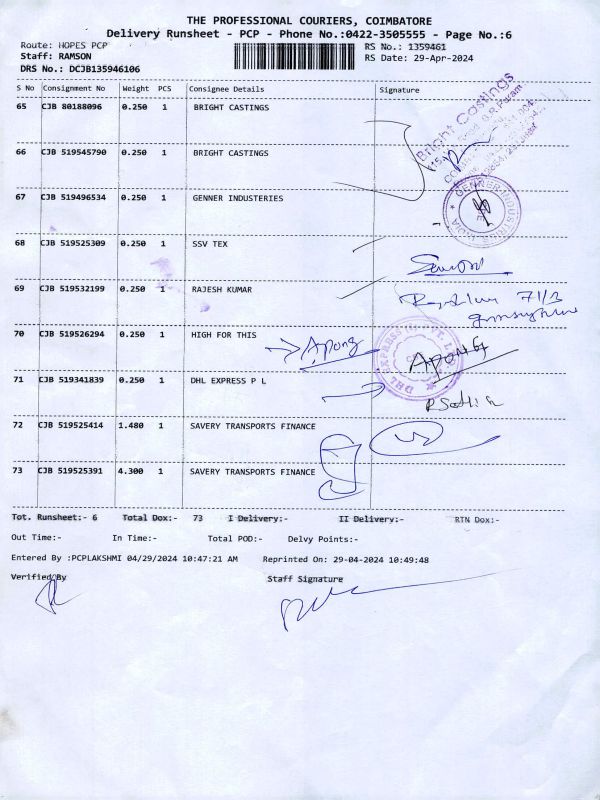 THE PROFESSIONAL COURIERS, COIMBATORE
Delivery Runsheet - PCP - Phone No.:0422-3505555 - Page No.:6
Route: HOPES PCP RS No.: 1359461
Staff: RAMSON RS Date: 29-Apr-2024
DRS No.: DCJB135946106
S No Consignment No Weight PCS Consignee Details Signature
65 CJB 80188096 0.250 1 BRIGHT CASTINGS
Bright Castings
66 CJB 519545790 0.250 1 BRIGHT CASTINGS
67 CJB 519496534 0.250 1 GENNER INDUSTERIES
GENNER INDUSTRIES
68 CJB 519525309 0.250 1 SSV TEX
69 CJB 519532199 0.250 1 RAJESH KUMAR
70 CJB 519526294 0.250 1 HIGH FOR THIS
DHL EXPRESS (I) PVT. LTD.
71 CJB 519341839 0.250 1 DHL EXPRESS P L
72 CJB 519525414 1.480 1 SAVERY TRANSPORTS FINANCE
73 CJB 519525391 4.300 1 SAVERY TRANSPORTS FINANCE
Tot. Runsheet:- 6 Total Dox:- 73 I Delivery:- II Delivery:- RTN Dox:-
Out Time:- In Time:- Total POD:- Delvy Points:-
Entered By :PCPLAKSHMI 04/29/2024 10:47:21 AM Reprinted On: 29-04-2024 10:49:48
Verified By Staff Signature